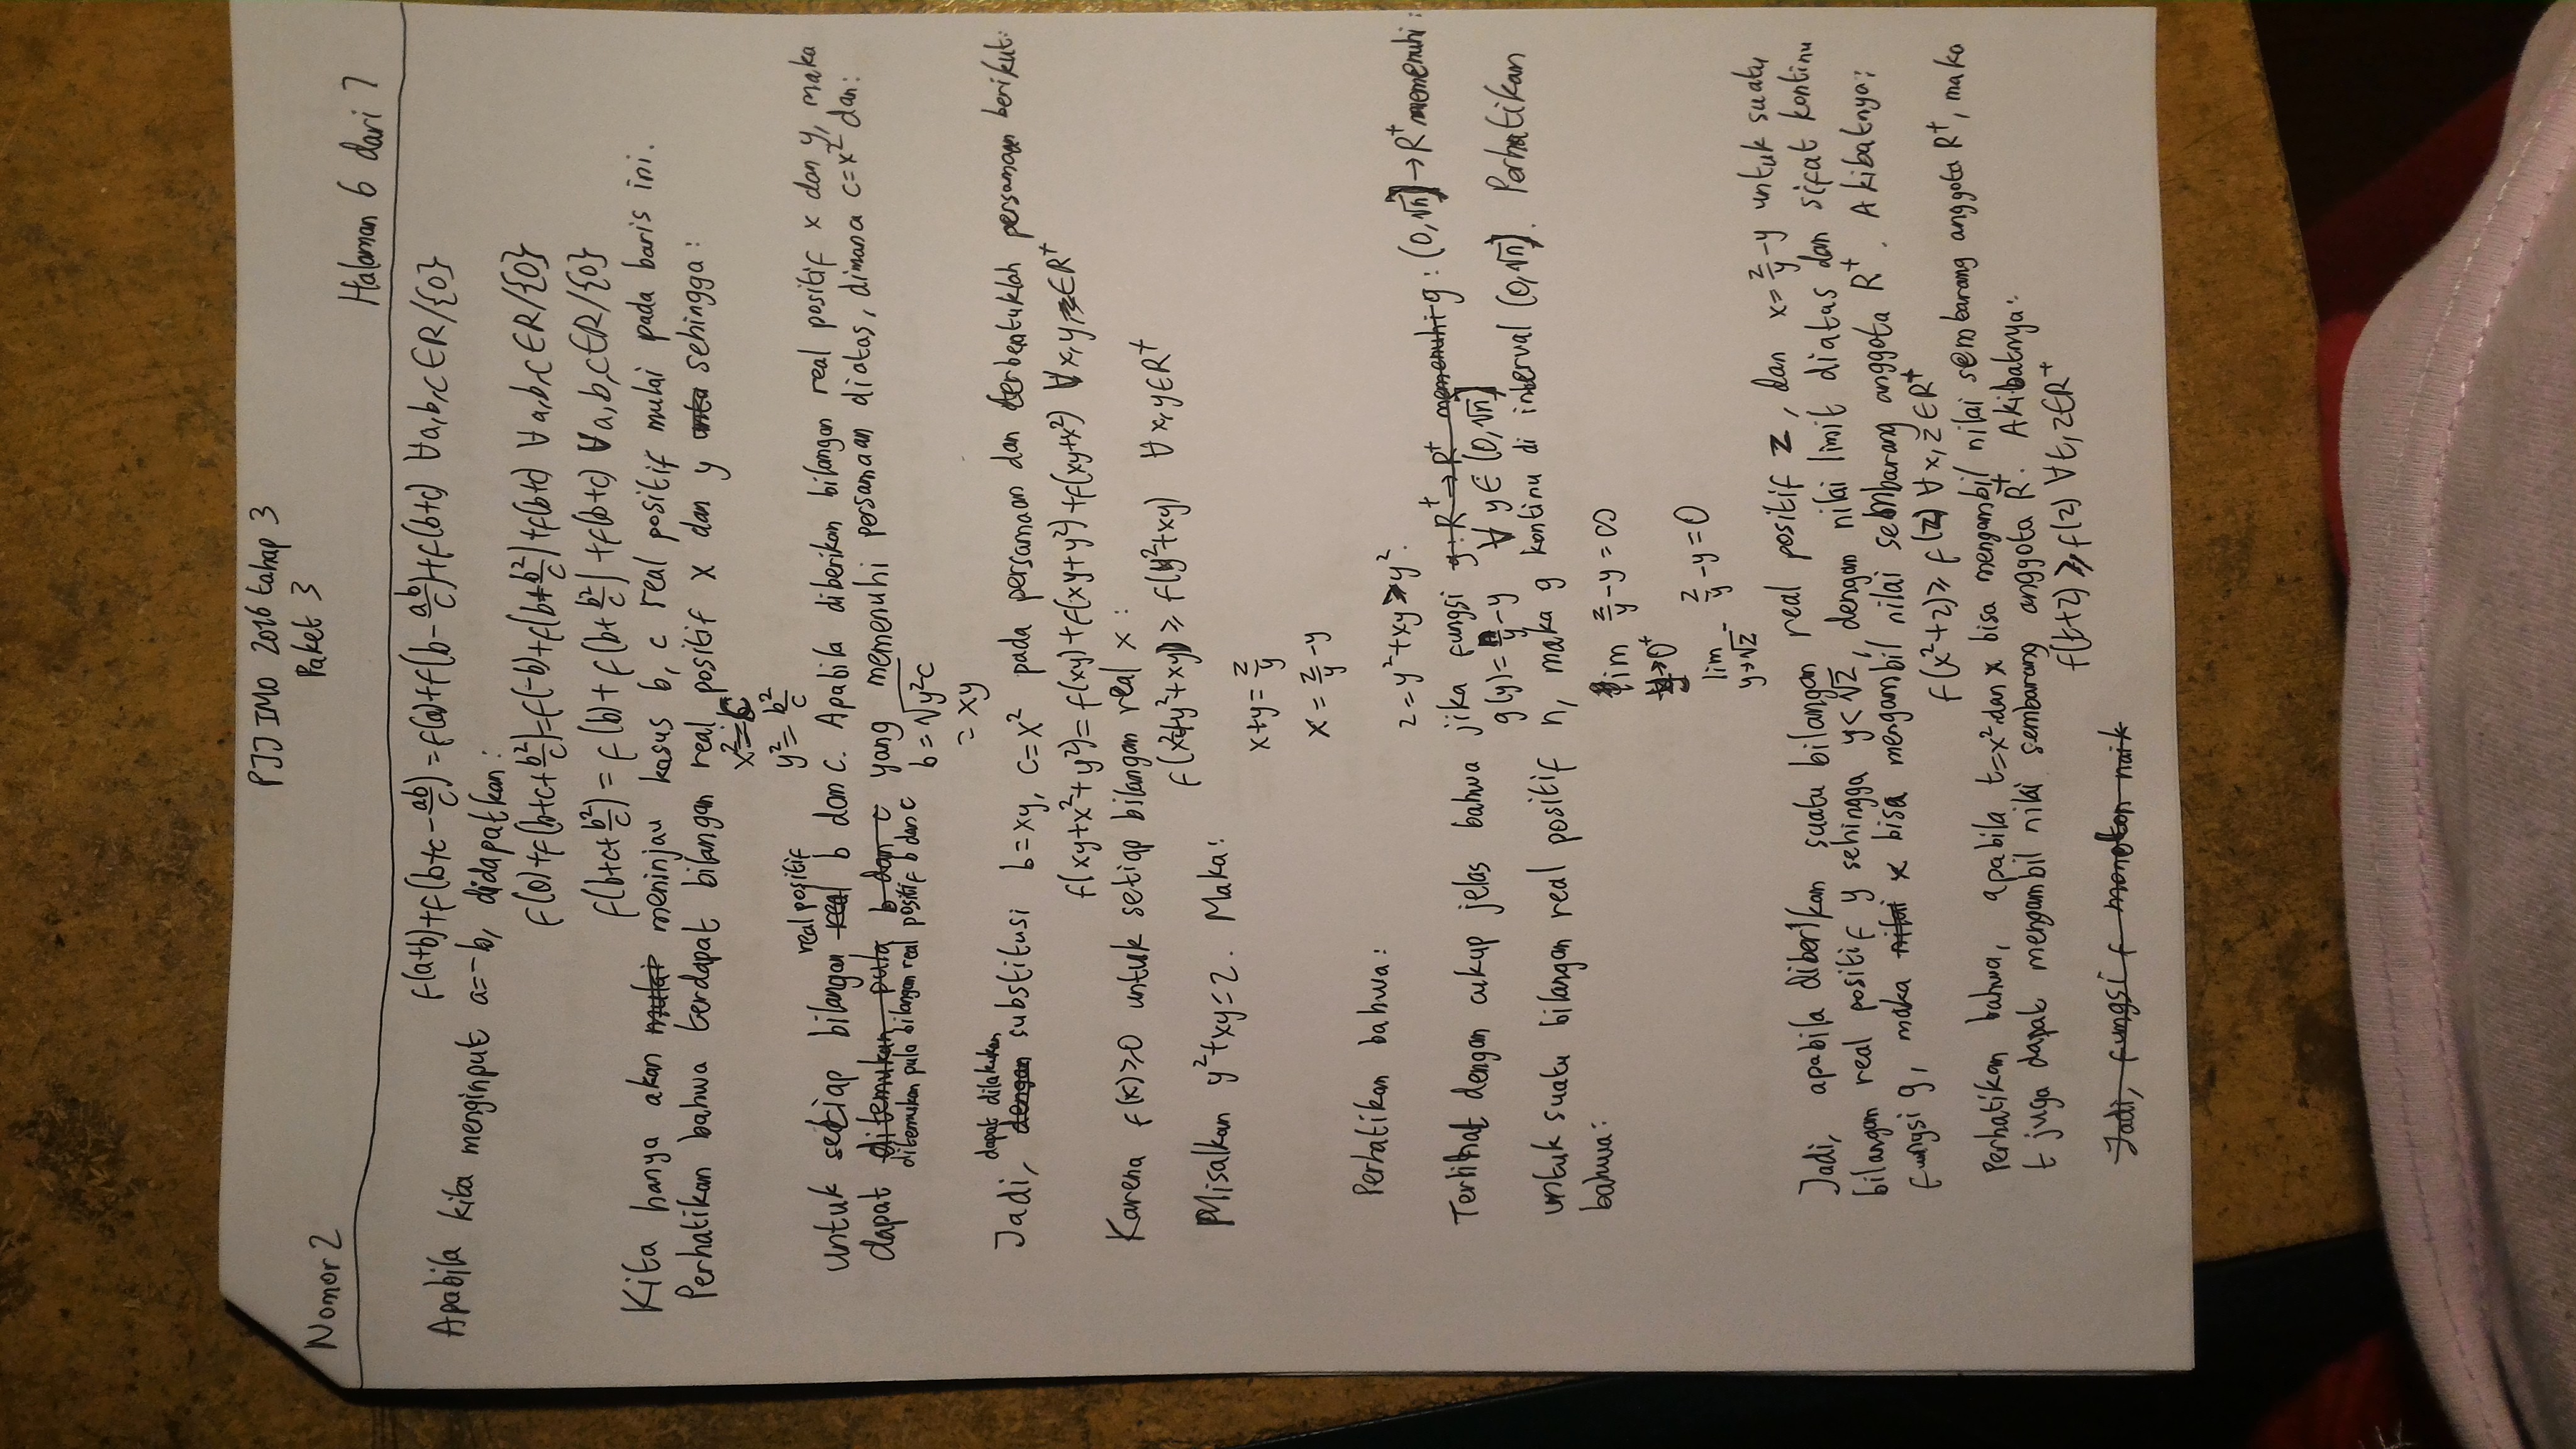 PJJ IMO 2016 tahap 3
Paket 3
Nomor 2
Halaman 6 dari 7
f(a+b)+f(b+c-\frac{ab}{c})=f(a)+f(b-\frac{ab}{c})+f(b+c) ∀a,b,c∈R/{0}
Apabila kita menginput a=-b, didapatkan:
f(0)+f(b+c+\frac{b²}{c})=f(-b)+f(b+\frac{b²}{c})+f(b+c) ∀a,b,c∈R/{0}
f(b+c+\frac{b²}{c})=f(b)+f(b+\frac{b²}{c})+f(b+c) ∀a,b,c∈R/{0}
Kita hanya akan mulai meninjau kasus b, c real positif mulai pada baris ini.
Perhatikan bahwa terdapat bilangan real positif x dan y sehingga:
x²=c
y²=\frac{b²}{c}
real positif
untuk setiap bilangan real b dan c. Apabila diberikan bilangan real positif x dan y, maka
dapat ditemukan pula b dan c yang memenuhi persamaan diatas, dimana c=x² dan:
ditemukan pula bilangan real positif b dan c
b=√(y²c)
=xy
dapat dilakukan
Jadi, dengan substitusi b=xy, c=x² pada persamaan dan terbentuklah persamaan berikut:
f(xy+x²+y²)=f(xy)+f(xy+y²)+f(xy+x²) ∀x,y∈R⁺
Karena f(x)≥0 untuk setiap bilangan real x:
f(x²+y²+xy)≥f(y²+xy) ∀x,y∈R⁺
Misalkan y²+xy=z. Maka:
x+y=\frac{z}{y}
x=\frac{z}{y}-y
Perhatikan bahwa:
z=y²+xy>y².
Terlihat dengan cukup jelas bahwa jika fungsi g:R⁺→R⁺ memenuhi g:(0,√n]→R⁺ memenuhi:
g(y)=\frac{n}{y}-y ∀y∈(0,√n]
untuk suatu bilangan real positif n, maka g kontinu di interval (0,√n]. Perhatikan
bahwa:
lim \frac{z}{y}-y=∞
y→0⁺
lim \frac{z}{y}-y=0
y→√z⁻
Jadi, apabila diberikan suatu bilangan real positif z, dan x=\frac{z}{y}-y untuk suatu
bilangan real positif y sehingga y<√z, dengan nilai limit diatas dan sifat kontinu
fungsi g, maka nilai x bisa mengambil nilai sembarang anggota R⁺. Akibatnya:
f(x²+z)≥f(z) ∀x,z∈R⁺
Perhatikan bahwa, apabila t=x² dan x bisa mengambil nilai sembarang anggota R⁺, maka
t juga dapat mengambil nilai sembarang anggota R⁺. Akibatnya:
f(t+z)≥f(z) ∀t,z∈R⁺
Jadi, fungsi f monoton naik